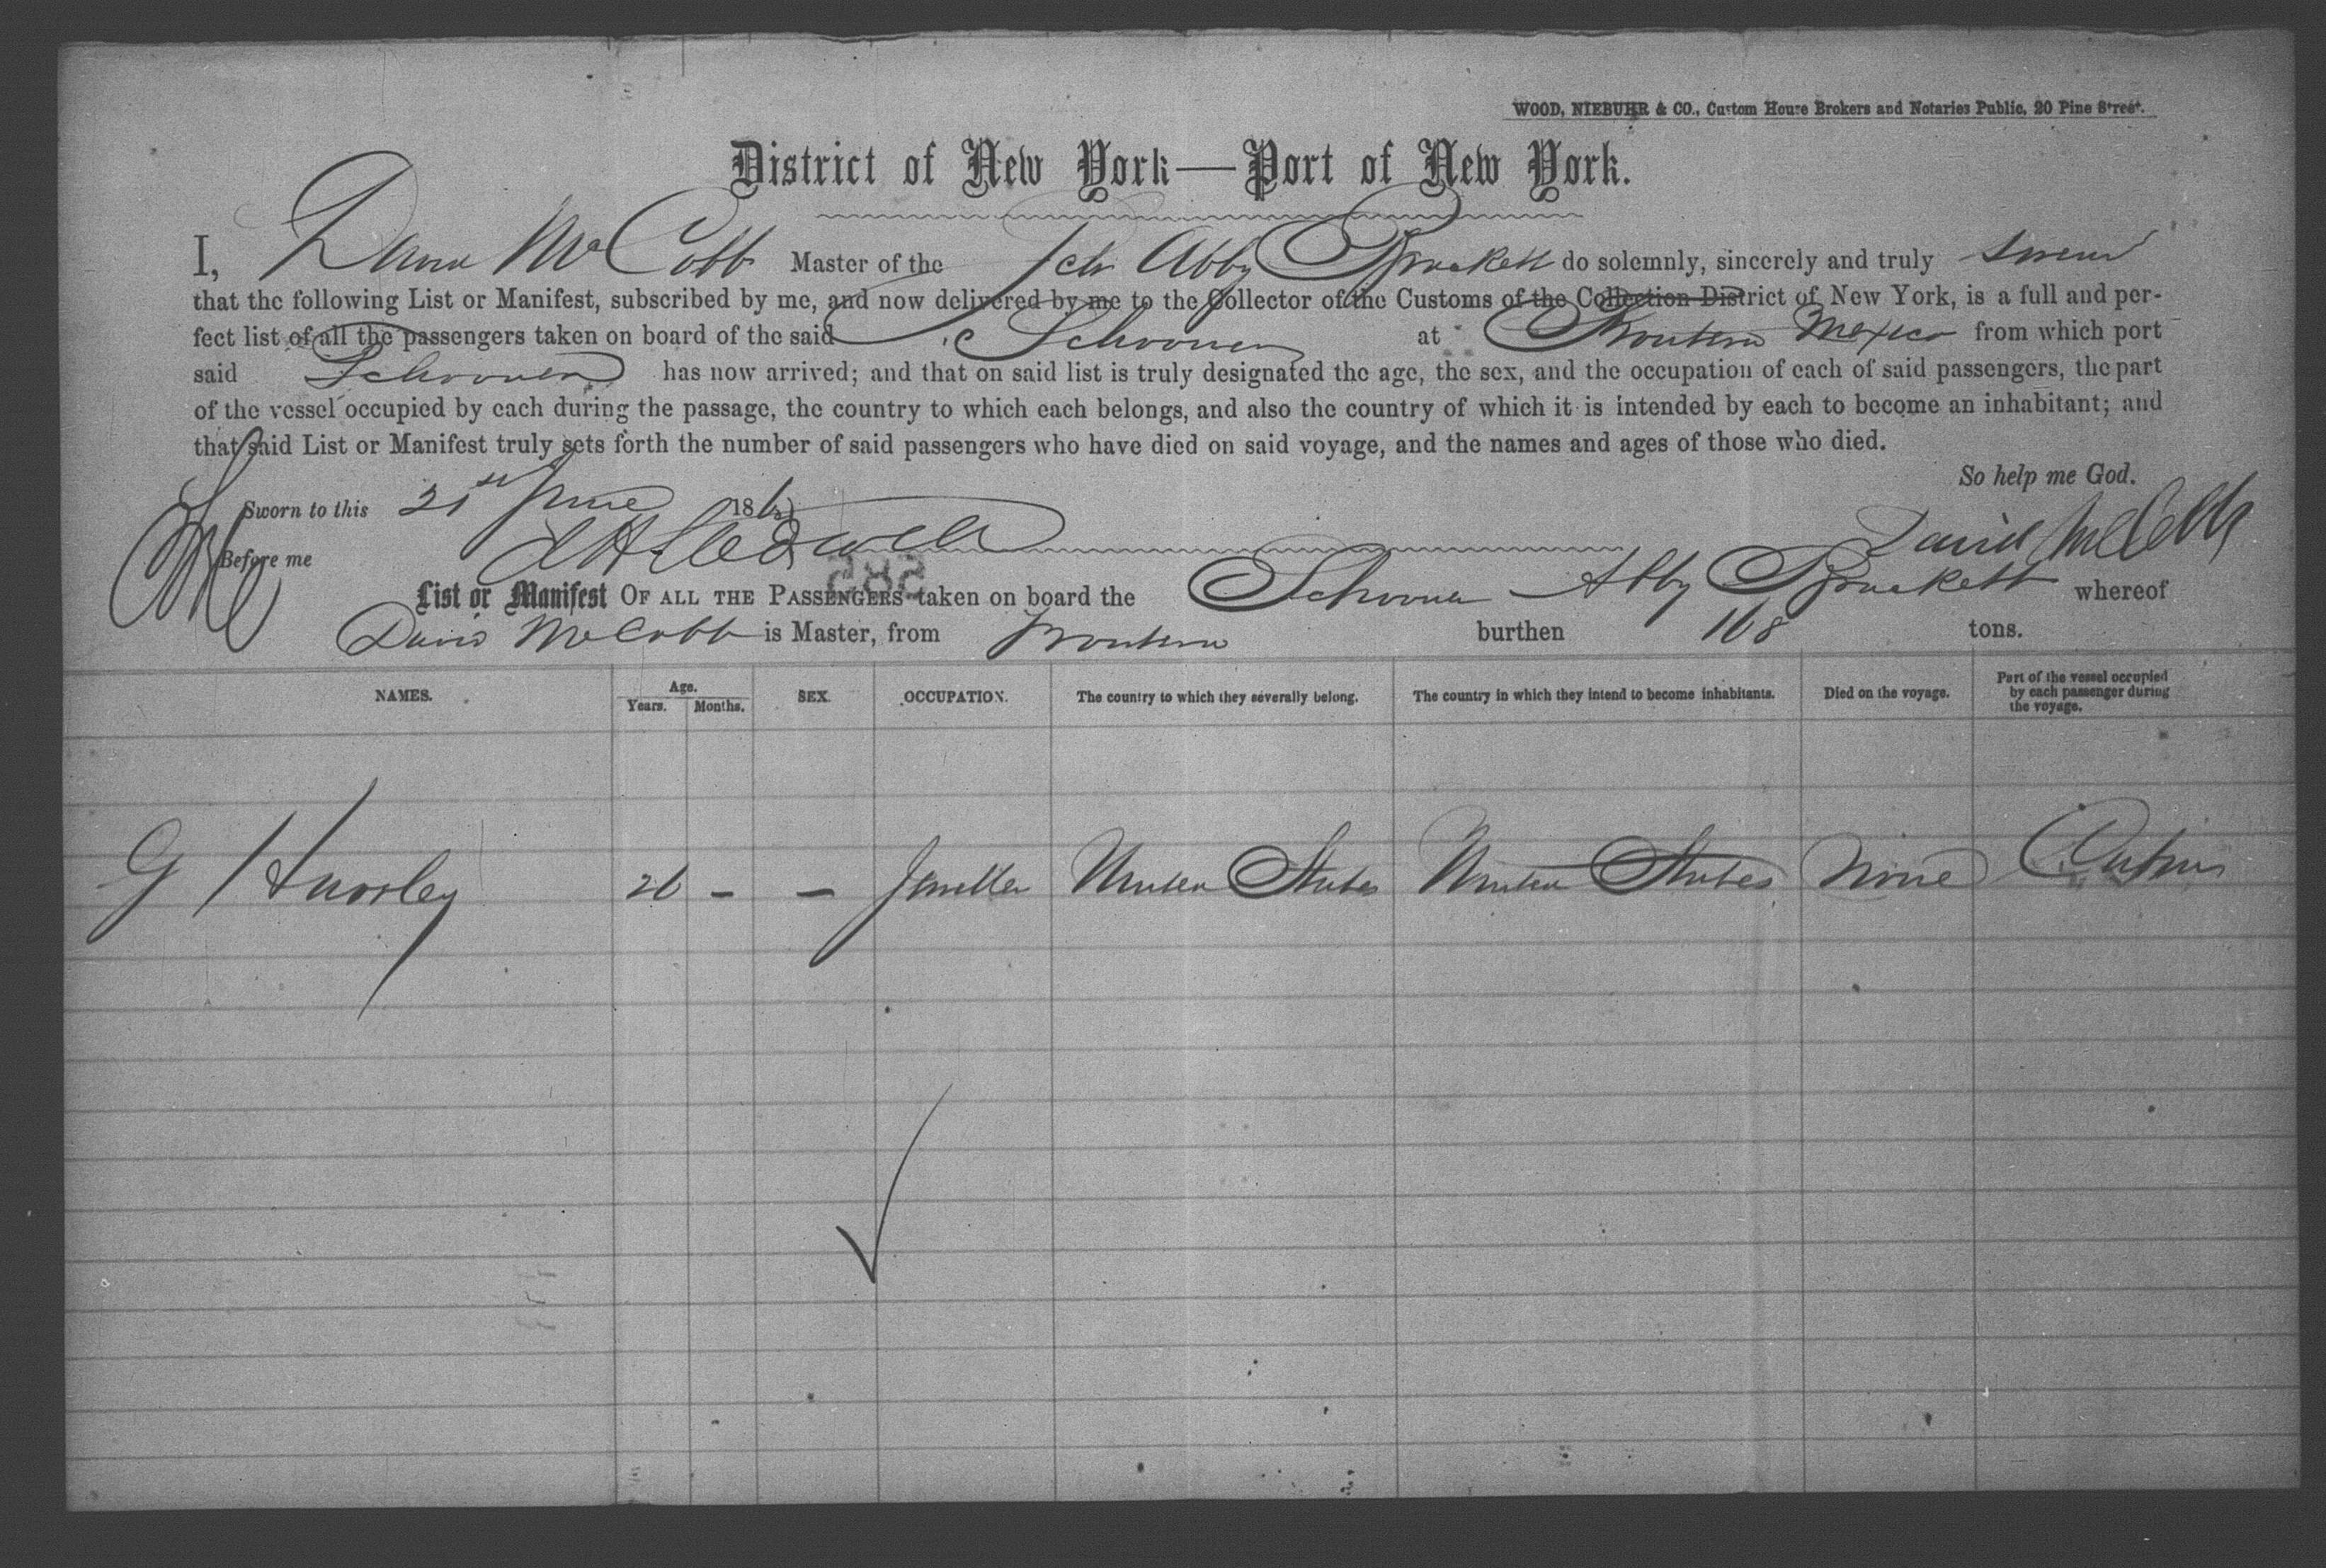 WOOD, NIEBUHR & CO., Custom House Brokers and Notaries Public, 20 Pine Street.
District of New York—Port of New York.
I, David McCobb Master of the Sch Abby Brackett do solemnly, sincerely and truly swear
that the following List or Manifest, subscribed by me, and now delivered by me to the Collector of the Customs of the Collection District of New York, is a full and per-
fect list of all the passengers taken on board of the said Schooner at Frontera Mexico from which port
said Schooner has now arrived; and that on said list is truly designated the age, the sex, and the occupation of each of said passengers, the part
of the vessel occupied by each during the passage, the country to which each belongs, and also the country of which it is intended by each to become an inhabitant; and
that said List or Manifest truly sets forth the number of said passengers who have died on said voyage, and the names and ages of those who died.
So help me God.
Sworn to this 21st June 186
David McCobb
Before me
585
List or Manifest OF ALL THE PASSENGERS taken on board the Schooner Abby Brackett whereof
David McCobb is Master, from Frontera burthen 168 tons.
NAMES. Age. Years. Months. SEX. OCCUPATION. The country to which they severally belong. The country in which they intend to become inhabitants. Died on the voyage. Part of the vessel occupied by each passenger during the voyage.
G Hursley 26 - - Jeweller United States United States None Cabin